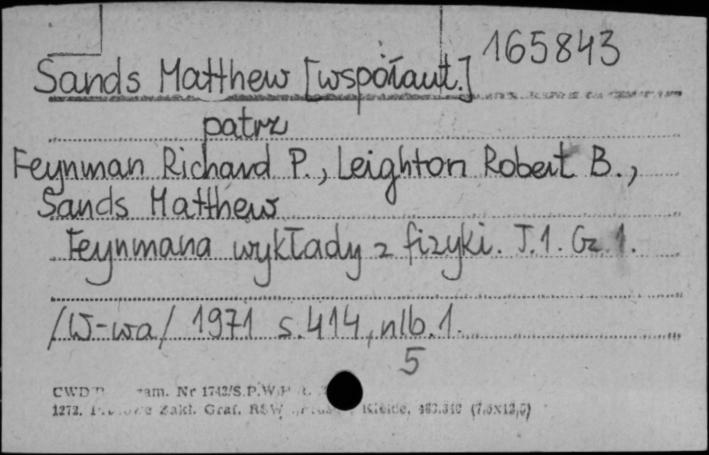 165843
Sands Matthew [współaut.]
patrz
Feynman Richard P., Leighton Robert B.,
Sands Matthew
Feynmana wykłady z fizyki. T.1. Cz.1.
/W-wa/ 1971 s.414, nlb.1.
5
Nr 1742/S.P.W.
1272. Zakł. Graf. RSW Kielce. (7,5x12,5)